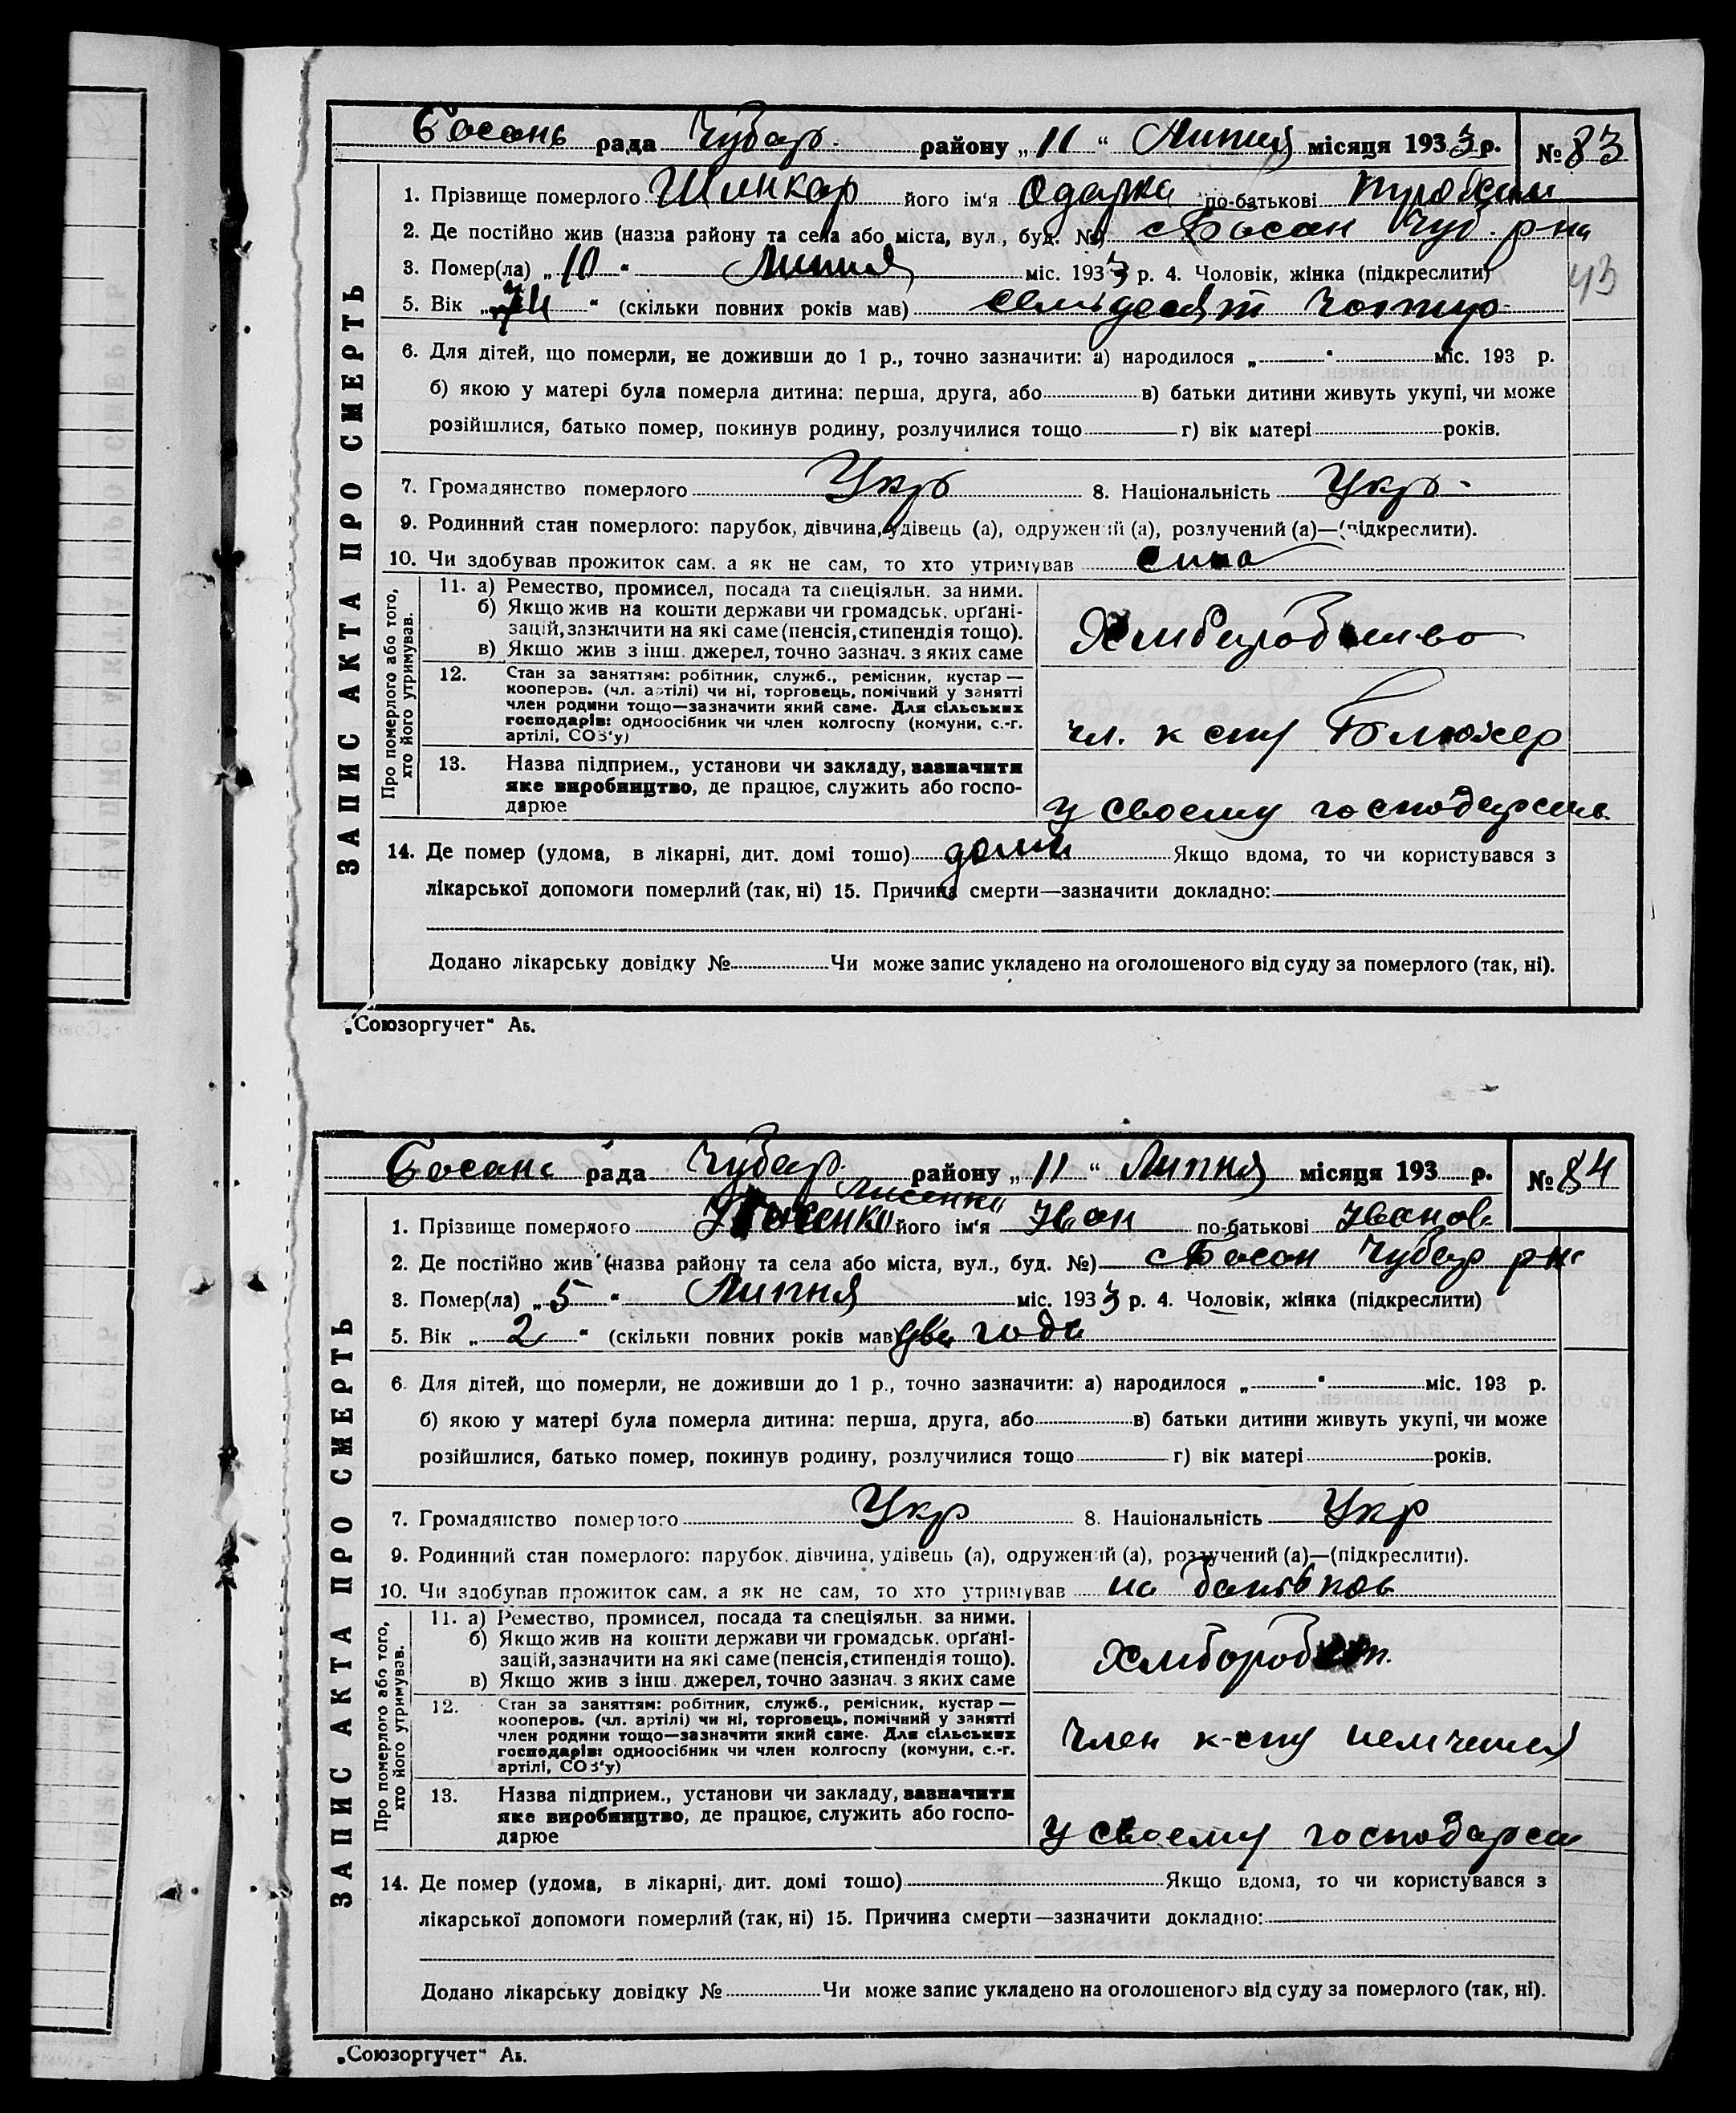 Босань рада Чубар. району „11“ Липня місяця 1933 р. № 83
1. Прізвище померлого Шинкар його ім'я Одарка по-батькові
2. Де постійно жив (назва району та села або міста, вул., буд. №) с Босань Чуб. р на
3. Помер(ла) „10“ Липня міс. 1933 р. 4. Чоловік, жінка (підкреслити)
43
5. Вік „74“ (скільки повних років мав) семідесят
6. Для дітей, що померли, не доживши до 1 р., точно зазначити: а) народилося „ “ міс. 193 р.
б) якою у матері була померла дитина: перша, друга, або в) батьки дитини живуть укупі, чи може
розійшлися, батько помер, покинув родину, розлучилися тощо г) вік матері років.
7. Громадянство померлого Укр 8. Національність Укр
9. Родинний стан померлого: парубок, дівчина, удівець (а), одружений (а), розлучений (а)—(підкреслити).
10. Чи здобував прожиток сам, а як не сам, то хто утримував сина
ЗАПИС АКТА ПРО СМЕРТЬ
Про померлого або того, хто його утримував.
11. а) Ремество, промисел, посада та спеціяльн. за ними.
б) Якщо жив на кошти держави чи громадськ. орґані-
зацій, зазначити на які саме (пенсія, стипендія тощо).
в) Якщо жив з інш. джерел, точно зазнач. з яких саме
12. Стан за заняттям: робітник, служб., ремісник, кустар —
кооперов. (чл. артілі) чи ні, торговець, помічний у занятті
член родини тощо—зазначити який саме. Для сільських
господарів: одноосібник чи член колгоспу (комуни, с.-г.
артілі, СОЗ'у)
чл. к спу Блюхер
13. Назва підприєм., установи чи закладу, зазначити
яке виробництво, де працює, служить або госпо-
дарює
у своему
14. Де помер (удома, в лікарні, дит. домі тощо) дома Якщо вдома, то чи користувався з
лікарської допомоги померлий (так, ні) 15. Причина смерти—зазначити докладно:
Додано лікарську довідку № Чи може запис укладено на оголошеного від суду за померлого (так, ні).
„Союзоргучет“ Аб.
Босань рада Чубар. району „11“ Липня місяця 193 р. № 84
Лисенко
1. Прізвище померлого його ім'я Іван по-батькові Іванов
2. Де постійно жив (назва району та села або міста, вул., буд. №) с Босан Чубар р н
3. Помер(ла) „5“ Липня міс. 1933 р. 4. Чоловік, жінка (підкреслити)
5. Вік „2“ (скільки повних років мав) два года
6. Для дітей, що померли, не доживши до 1 р., точно зазначити: а) народилося „ “ міс. 193 р.
б) якою у матері була померла дитина: перша, друга, або в) батьки дитини живуть укупі, чи може
розійшлися, батько помер, покинув родину, розлучилися тощо г) вік матері років.
7. Громадянство померлого Укр 8. Національність Укр
9. Родинний стан померлого: парубок, дівчина, удівець (а), одружений (а), розлучений (а)—(підкреслити).
10. Чи здобував прожиток сам, а як не сам, то хто утримував на батьков
ЗАПИС АКТА ПРО СМЕРТЬ
Про померлого або того, хто його утримував.
11. а) Ремество, промисел, посада та спеціяльн. за ними.
б) Якщо жив на кошти держави чи громадськ. орґані-
зацій, зазначити на які саме (пенсія, стипендія тощо).
в) Якщо жив з інш. джерел, точно зазнач. з яких саме
12. Стан за заняттям: робітник, служб., ремісник, кустар —
кооперов. (чл. артілі) чи ні, торговець, помічний у занятті
член родини тощо—зазначити який саме. Для сільських
господарів: одноосібник чи член колгоспу (комуни, с.-г.
артілі, СОЗ'у)
Член к-спу
13. Назва підприєм., установи чи закладу, зазначити
яке виробництво, де працює, служить або госпо-
дарює
у своему
14. Де помер (удома, в лікарні, дит. домі тощо) Якщо вдома, то чи користувався з
лікарської допомоги померлий (так, ні) 15. Причина смерти—зазначити докладно:
Додано лікарську довідку № Чи може запис укладено на оголошеного від суду за померлого (так, ні).
„Союзоргучет“ Аб.